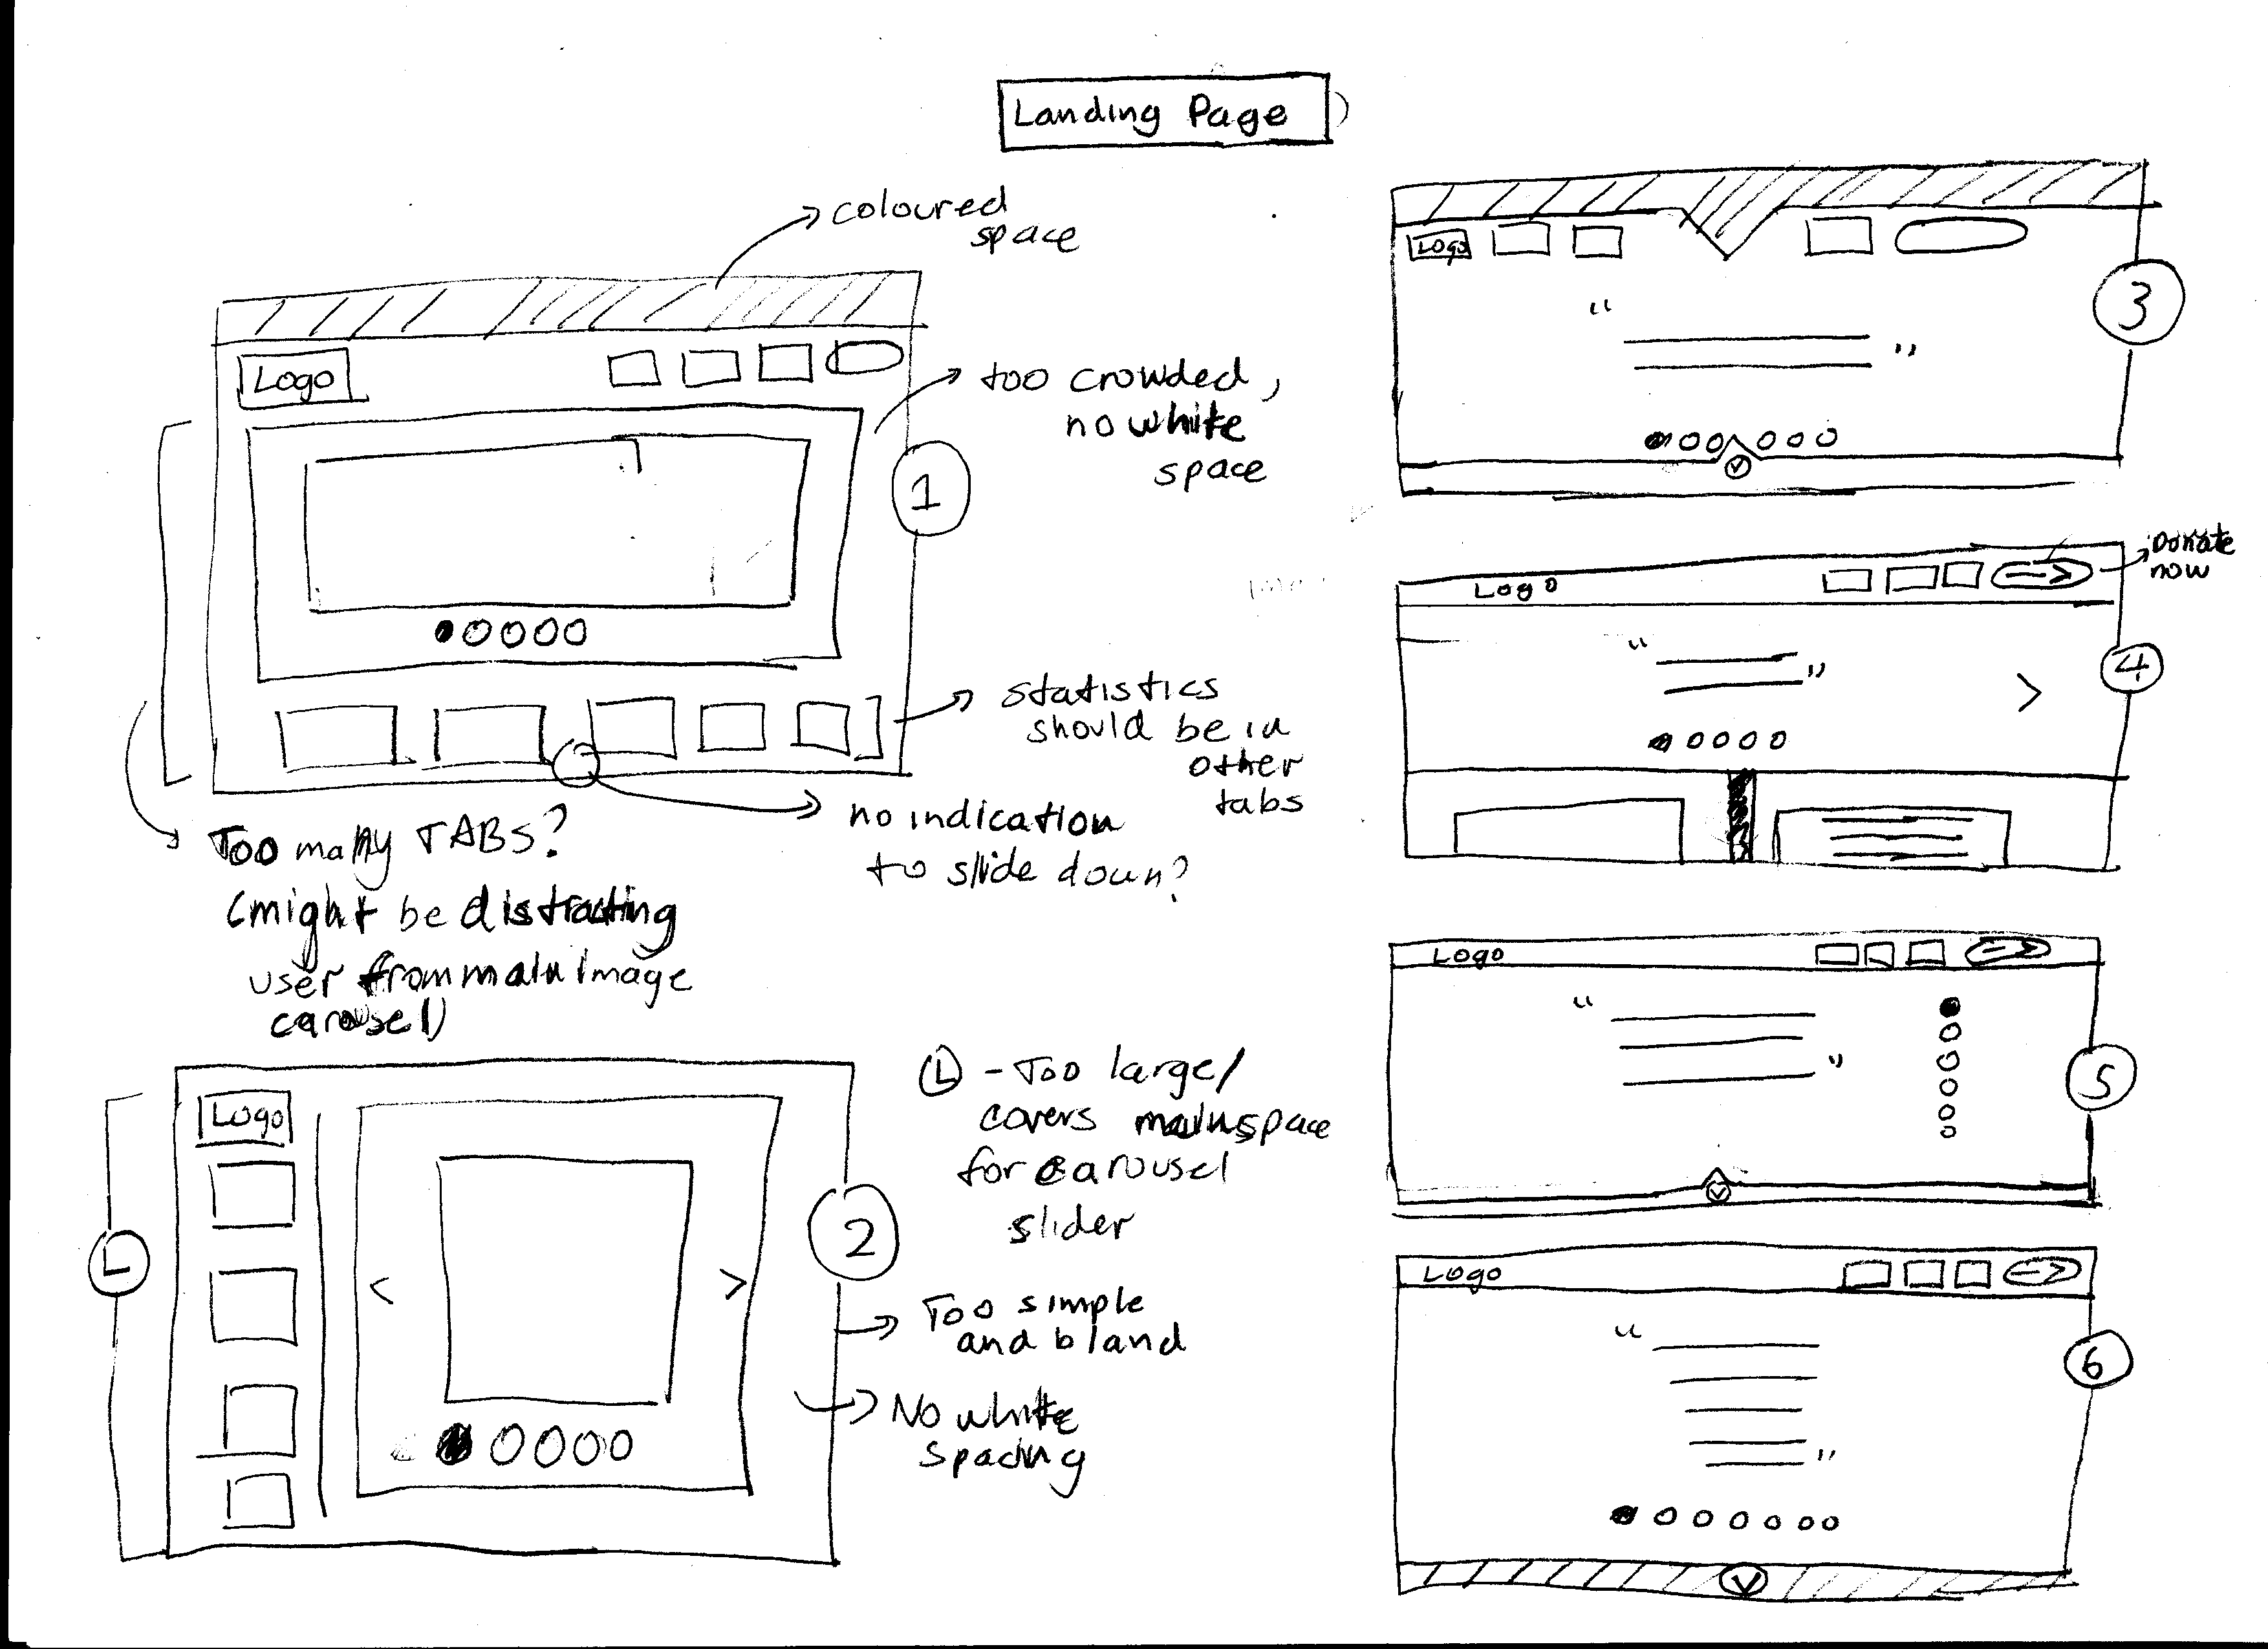 Landing Page
coloured
space
Logo
too crowded,
no white
space
1
statistics
should be in
other
tabs
no indication
to slide down?
Too many TABS?
(might be distracting
user from main image
carousel)
Logo
L
2
L - Too large/
covers mainspace
for carousel
slider
Too simple
and bland
No white
spacing
Logo
“
”
3
Logo
Donate
now
“
”
4
Logo
“
”
5
Logo
“
”
6